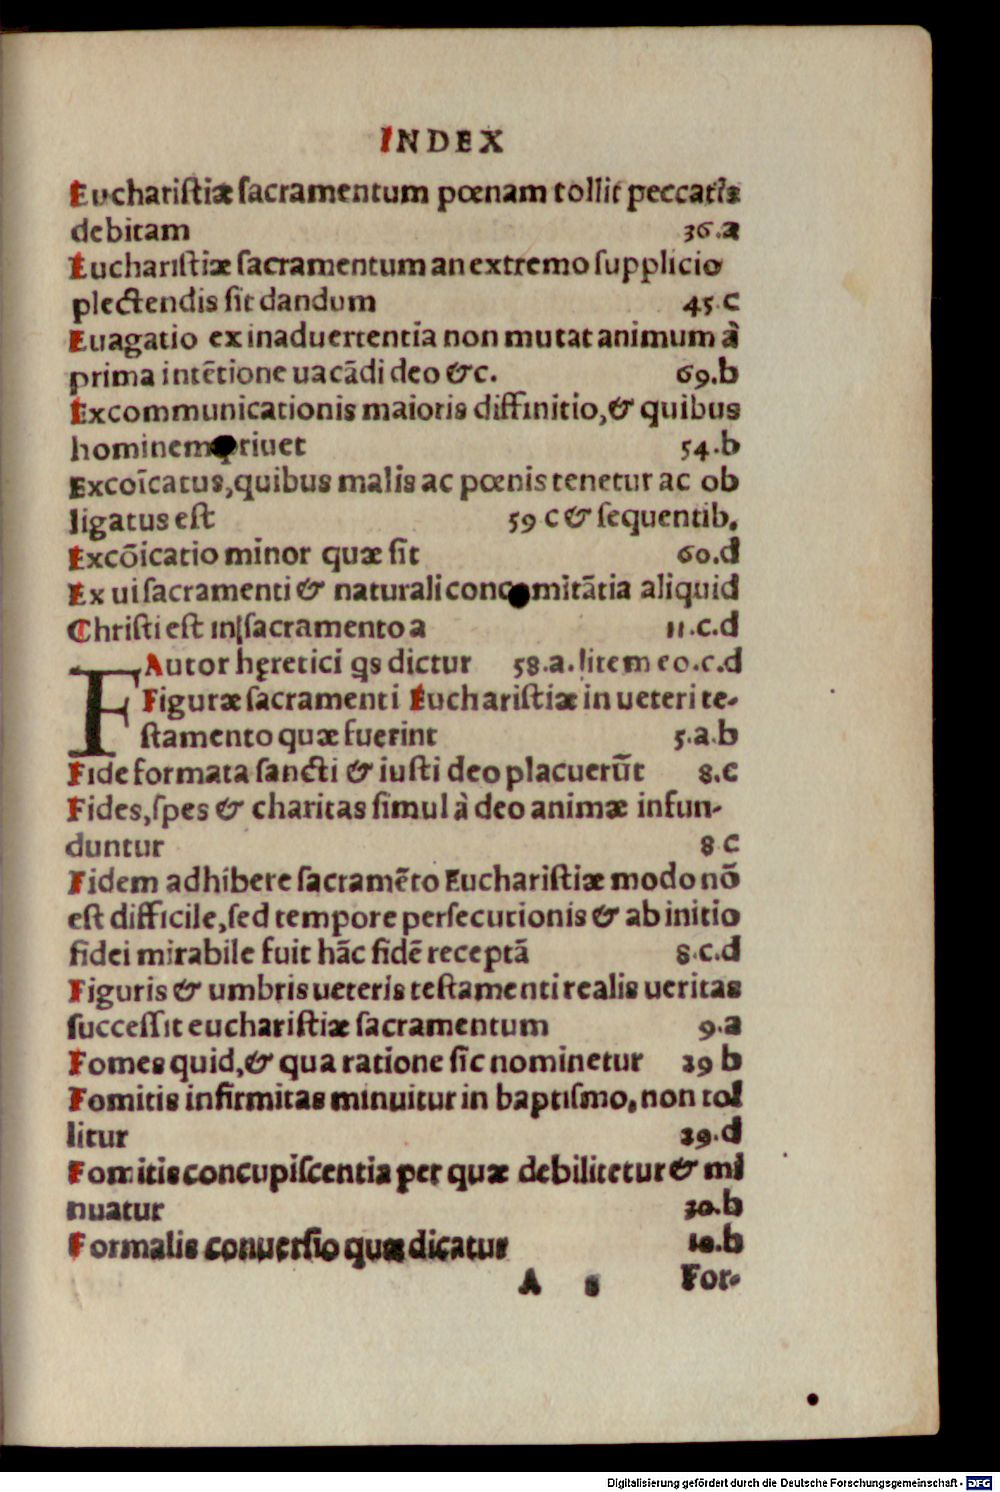 INDEX
Eucharistiæ sacramentum pœnam tollit peccatis
debitam 36.a
Eucharistiæ sacramentum an extremo supplicio
plectendis sit dandum 45.c
Euagatio ex inaduertentia non mutat animum à
prima intētione uacādi deo &c. 69.b
Excommunicationis maioris diffinitio,& quibus
hominem priuet 54.b
Excoīcatus,quibus malis ac pœnis tenetur ac ob
ligatus est 59 c & sequentib.
Excōicatio minor quæ sit 60.d
Ex ui sacramenti & naturali concomitātia aliquid
Christi est in sacramento a 11.c.d
FAutor hęretici qs dictur 58.a. Item eo.c.d
Figuræ sacramenti Eucharistiæ in ueteri te-
stamento quæ fuerint 5.a.b
Fide formata sancti & iusti deo placuerūt 8.c
Fides,spes & charitas simul à deo animæ infun-
duntur 8 c
Fidem adhibere sacramēto Eucharistiæ modo nō
est difficile,sed tempore persecutionis & ab initio
fidei mirabile fuit hāc fidē receptā 8.c.d
Figuris & umbris ueteris testamenti realis ueritas
successit eucharistiæ sacramentum 9.a
Fomes quid,& qua ratione sic nominetur 29 b
Fomitis infirmitas minuitur in baptismo, non tol
litur 29.d
Fomitis concupiscentia per quæ debilitetur & mi
nuatur 30.b
Formalis conuersio quæ dicatur 10.b
A 5 For-
Digitalisierung gefördert durch die Deutsche Forschungsgemeinschaft - DFG